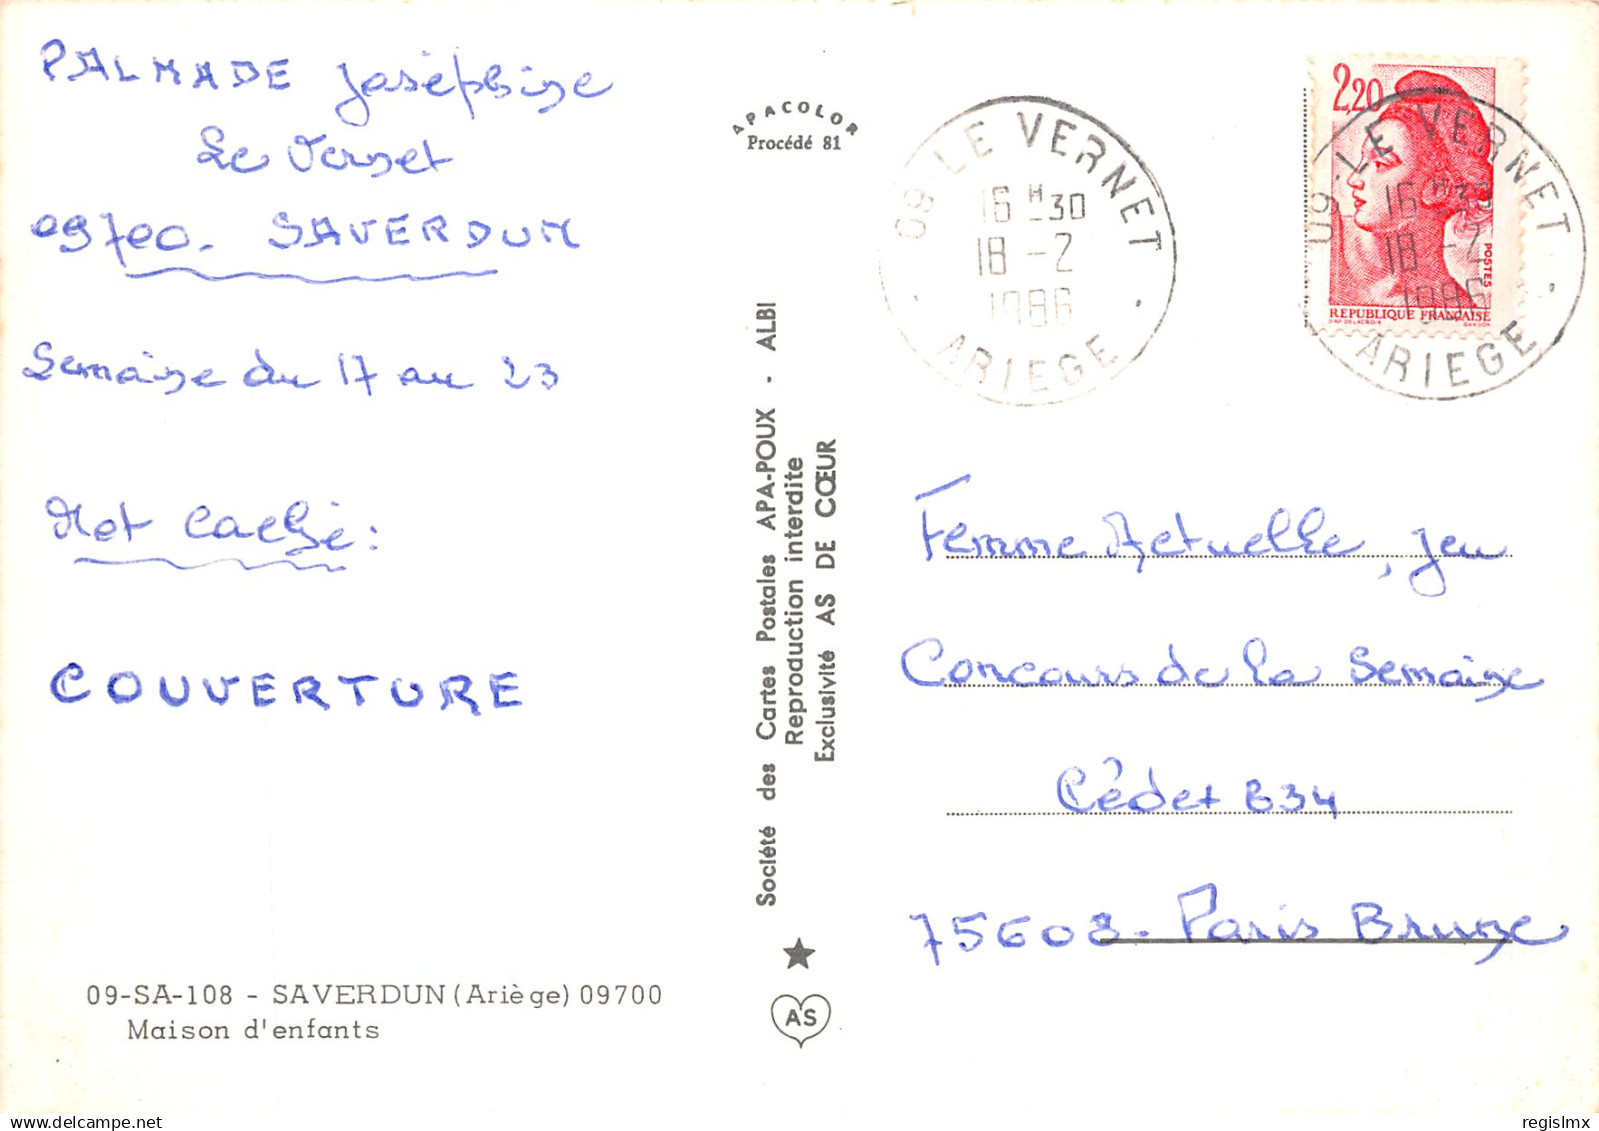 PALMADE Joséphine
Le Vernet
09700. SAVERDUN
Semaine du 17 au 23
Mot caché :
COUVERTURE
09-SA-108 - SAVERDUN (Ariège) 09700
Maison d'enfants
APACOLOR
Procédé 81
Société des Cartes Postales APA-POUX - ALBI
Reproduction interdite
Exclusivité AS DE CŒUR
AS
09-LE VERNET
16 H 30
18 -2
1986
ARIEGE
2,20
POSTES
REPUBLIQUE FRANÇAISE
D'AP. DELACROIX GANDON
09-LE VERNET
16 H 30
18 -2
1986
ARIEGE
Femme Actuelle, jeu
Concours de la Semaine
Cédex B34
75608. Paris Brune
regislmx